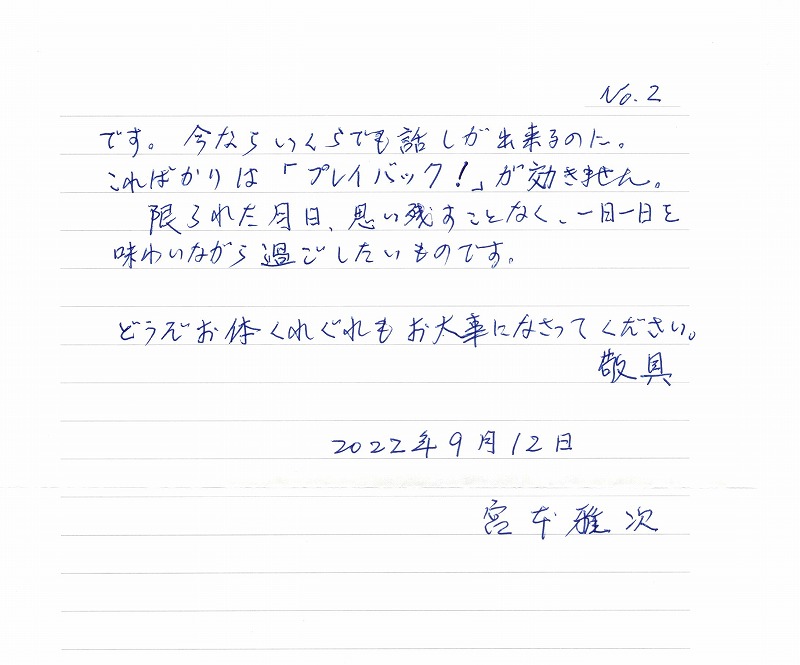 No.2
です。今ならいくらでも話しが出来るのに。
こればかりは「プレイバック!」が効きません。
限られた月日、思い残すことなく、一日一日を
味わいながら過ごしたいものです。
どうぞお体くれぐれもお大事になさってください。
敬具
2022年9月12日
宮本雅次